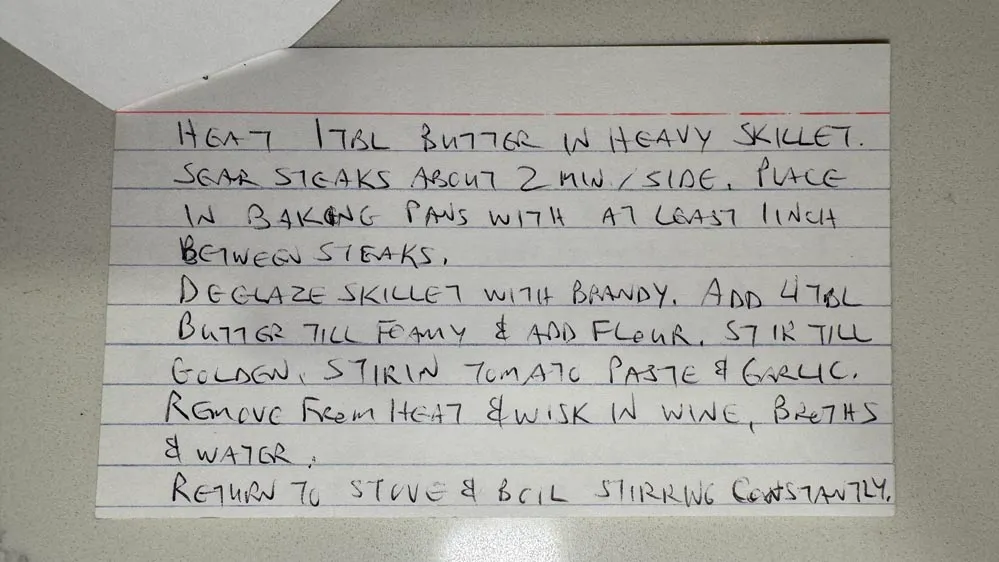 HEAT 1 TBL BUTTER IN HEAVY SKILLET.
SEAR STEAKS ABOUT 2 MIN / SIDE. PLACE
IN BAKING PANS WITH AT LEAST 1 INCH
BETWEEN STEAKS.
DEGLAZE SKILLET WITH BRANDY. ADD 4 TBL
BUTTER TILL FOAMY & ADD FLOUR. STIR TILL
GOLDEN. STIR IN TOMATO PASTE & GARLIC.
REMOVE FROM HEAT & WISK IN WINE, BROTHS
& WATER.
RETURN TO STOVE & BOIL STIRRING CONSTANTLY.